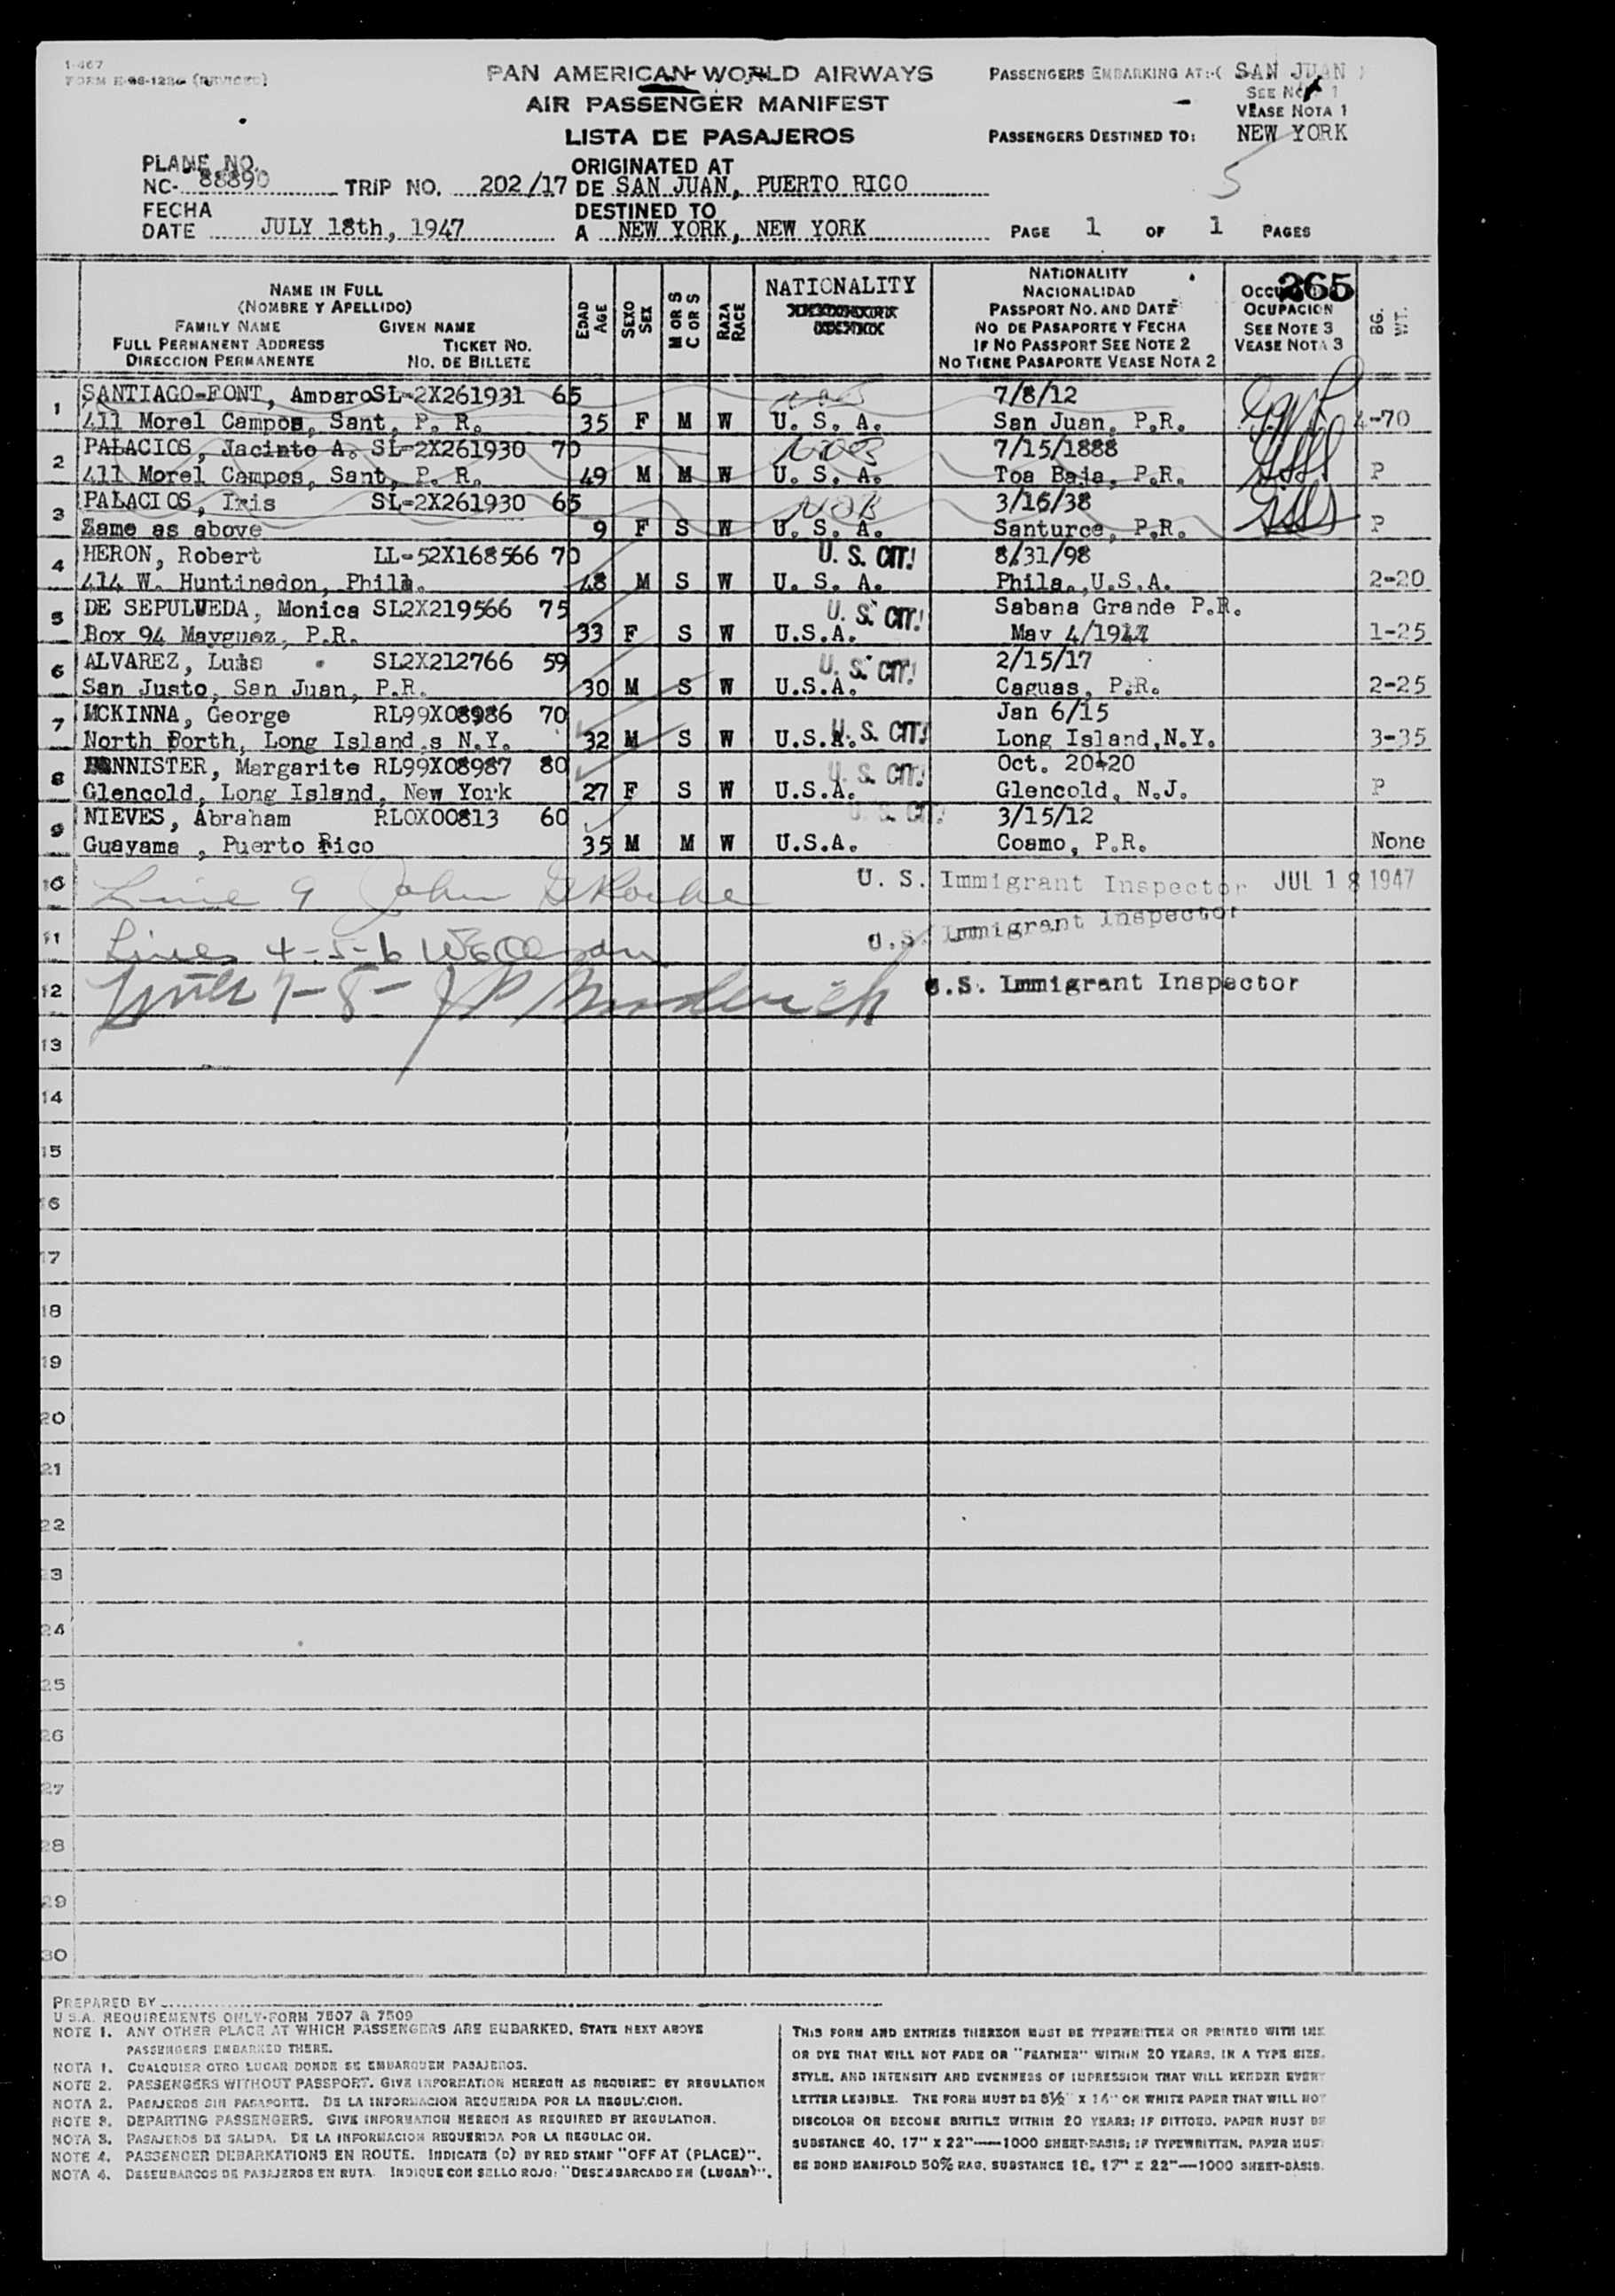 1-467
FORM E-96-1286 (REVISED)
PAN AMERICAN WORLD AIRWAYS
AIR PASSENGER MANIFEST
LISTA DE PASAJEROS
PASSENGERS EMBARKING AT:-( SAN JUAN )
SEE NOTE 1
VEASE NOTA 1
PASSENGERS DESTINED TO: NEW YORK
5
PLANE NO.
NC- 88890 TRIP NO. 202/17
ORIGINATED AT
DE SAN JUAN, PUERTO RICO
FECHA
DATE JULY 18th, 1947
DESTINED TO
A NEW YORK, NEW YORK
PAGE 1 OF 1 PAGES
NAME IN FULL
(NOMBRE Y APELLIDO)
FAMILY NAME GIVEN NAME
FULL PERMANENT ADDRESS TICKET NO.
DIRECCION PERMANENTE NO. DE BILLETE
EDAD
AGE
SEXO
SEX
M OR S
C OR S
RAZA
RACE
NATIONALITY
NATIONALITY
NACIONALIDAD
PASSPORT NO. AND DATE
NO DE PASAPORTE Y FECHA
IF NO PASSPORT SEE NOTE 2
NO TIENE PASAPORTE VEASE NOTA 2
265
OCUPACION
SEE NOTE 3
VEASE NOTA 3
BG.
WT.
1 SANTIAGO-FONT, Amparo SL-2X261931 65 7/8/12
411 Morel Campos, Sant, P. R. 35 F M W U. S. A. San Juan, P.R. 4-70
2 PALACIOS, Jacinto A. SL-2X261930 70 7/15/1888
411 Morel Campos, Sant, P. R. 49 M M W U. S. A. Toa Baja, P.R. P
3 PALACIOS, Iris SL-2X261930 65 NOB 3/16/38
Same as above 9 F S W U. S. A. Santurce, P.R. P
4 HERON, Robert LL-52X168566 70 U. S. CIT! 8/31/98
414 W. Huntinedon, Phila. 48 M S W U. S. A. Phila., U.S.A. 2-20
5 DE SEPULVEDA, Monica SL2X219566 75 U. S. CIT! Sabana Grande P.R.
Box 94 Mayguez, P.R. 33 F S W U.S.A. May 4/19 1-25
6 ALVAREZ, Luis SL2X212766 59 U. S. CIT! 2/15/17
San Justo, San Juan, P.R. 30 M S W U.S.A. Caguas, P.R. 2-25
7 MCKINNA, George RL99X08986 70 Jan 6/15
North Porth, Long Island,s N.Y. 32 M S W U.S.A. U. S. CIT! Long Island,N.Y. 3-35
8 BANNISTER, Margarite RL99X08987 80 U. S. CIT! Oct. 20420
Glencold, Long Island, New York 27 F S W U.S.A. Glencold, N.J. P
9 NIEVES, Abraham RLOX00813 60 U. S. CIT! 3/15/12
Guayama , Puerto Rico 35 M M W U.S.A. Coamo, P.R. None
10 Line 9 John U. S. Immigrant Inspector JUL 18 1947
11 Lines 4-5-6 U.S. Immigrant Inspector
12 Lines 7-8- U.S. Immigrant Inspector
13
14
15
16
17
18
19
20
21
22
23
24
25
26
27
28
29
30
PREPARED BY
U.S.A. REQUIREMENTS ONLY-FORM 7507 & 7509
NOTE 1. ANY OTHER PLACE AT WHICH PASSENGERS ARE EMBARKED, STATE NEXT ABOVE
PASSENGERS EMBARKED THERE.
NOTA 1. CUALQUIER OTRO LUGAR DONDE SE EMBARQUEN PASAJEROS.
NOTE 2. PASSENGERS WITHOUT PASSPORT. GIVE INFORMATION HEREON AS REQUIRED BY REGULATION
NOTA 2. PASAJEROS SIN PASAPORTE. DE LA INFORMACION REQUERIDA POR LA REGULACION.
NOTE 3. DEPARTING PASSENGERS. GIVE INFORMATION HEREON AS REQUIRED BY REGULATION.
NOTA 3. PASAJEROS DE SALIDA. DE LA INFORMACION REQUERIDA POR LA REGULACION.
NOTE 4. PASSENGER DEBARKATIONS EN ROUTE. INDICATE (D) BY RED STAMP "OFF AT (PLACE)".
NOTA 4. DESEMBARCOS DE PASAJEROS EN RUTA. INDIQUE CON SELLO ROJO: "DESEMBARCADO EN (LUGAR)".
THIS FORM AND ENTRIES THEREON MUST BE TYPEWRITTEN OR PRINTED WITH INK
OR DYE THAT WILL NOT FADE OR "FEATHER" WITHIN 20 YEARS, IN A TYPE SIZE,
STYLE, AND INTENSITY AND EVENNESS OF IMPRESSION THAT WILL RENDER EVERY
LETTER LEGIBLE. THE FORM MUST BE 8½" X 14" ON WHITE PAPER THAT WILL NOT
DISCOLOR OR BECOME BRITTLE WITHIN 20 YEARS; IF DITTOED, PAPER MUST BE
SUBSTANCE 40, 17" X 22"—1000 SHEET-BASIS; IF TYPEWRITTEN, PAPER MUST
BE BOND MANIFOLD 50% RAG, SUBSTANCE 18, 17" X 22"—1000 SHEET-BASIS.